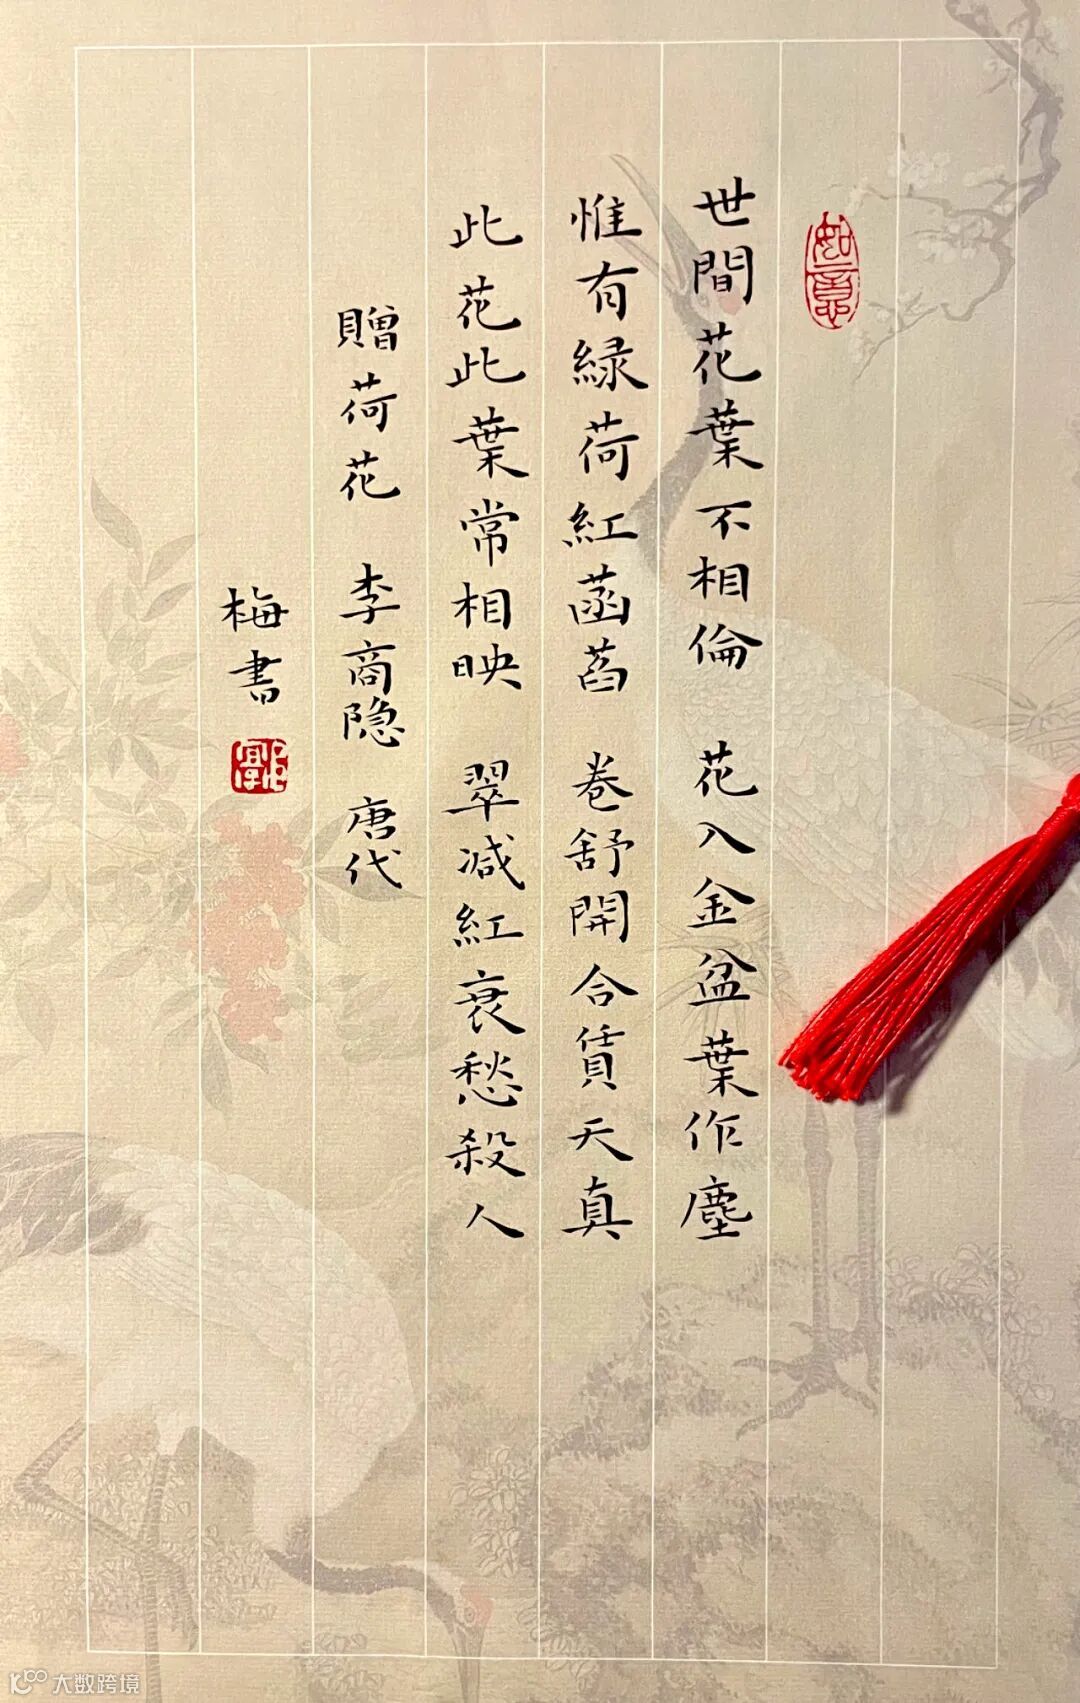 如意
世間花葉不相倫 花入金盆葉作塵
惟有緑荷紅菡萏 卷舒開合賃天真
此花此葉常相映 翠减紅衰愁殺人
贈荷花 李商隐 唐代
梅書
郭
大数跨境